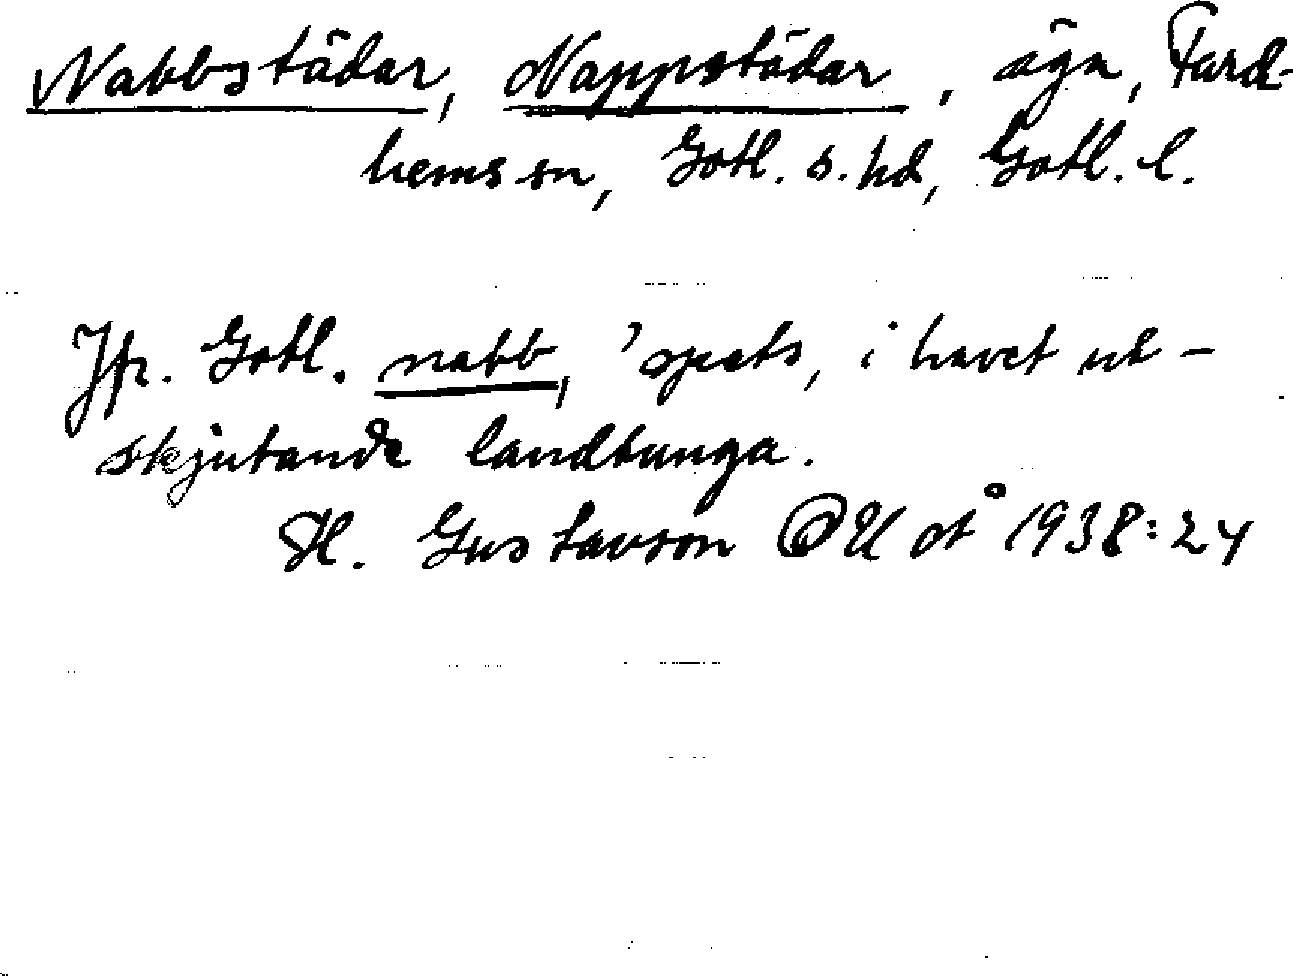 Nabbstädar, Nappstädar, äga, Fard-
hems sn, Gotl. s. hd, Gotl. l.
Jfr. Gotl. nabb, 'spets, i havet ut-
skjutande landtunga.
H. Gustavson OAU å 1938:24